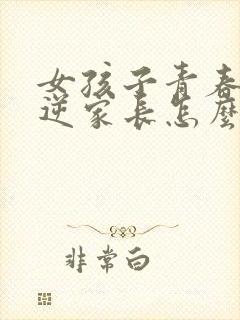 女孩子青春
逆家长怎麽
非常白